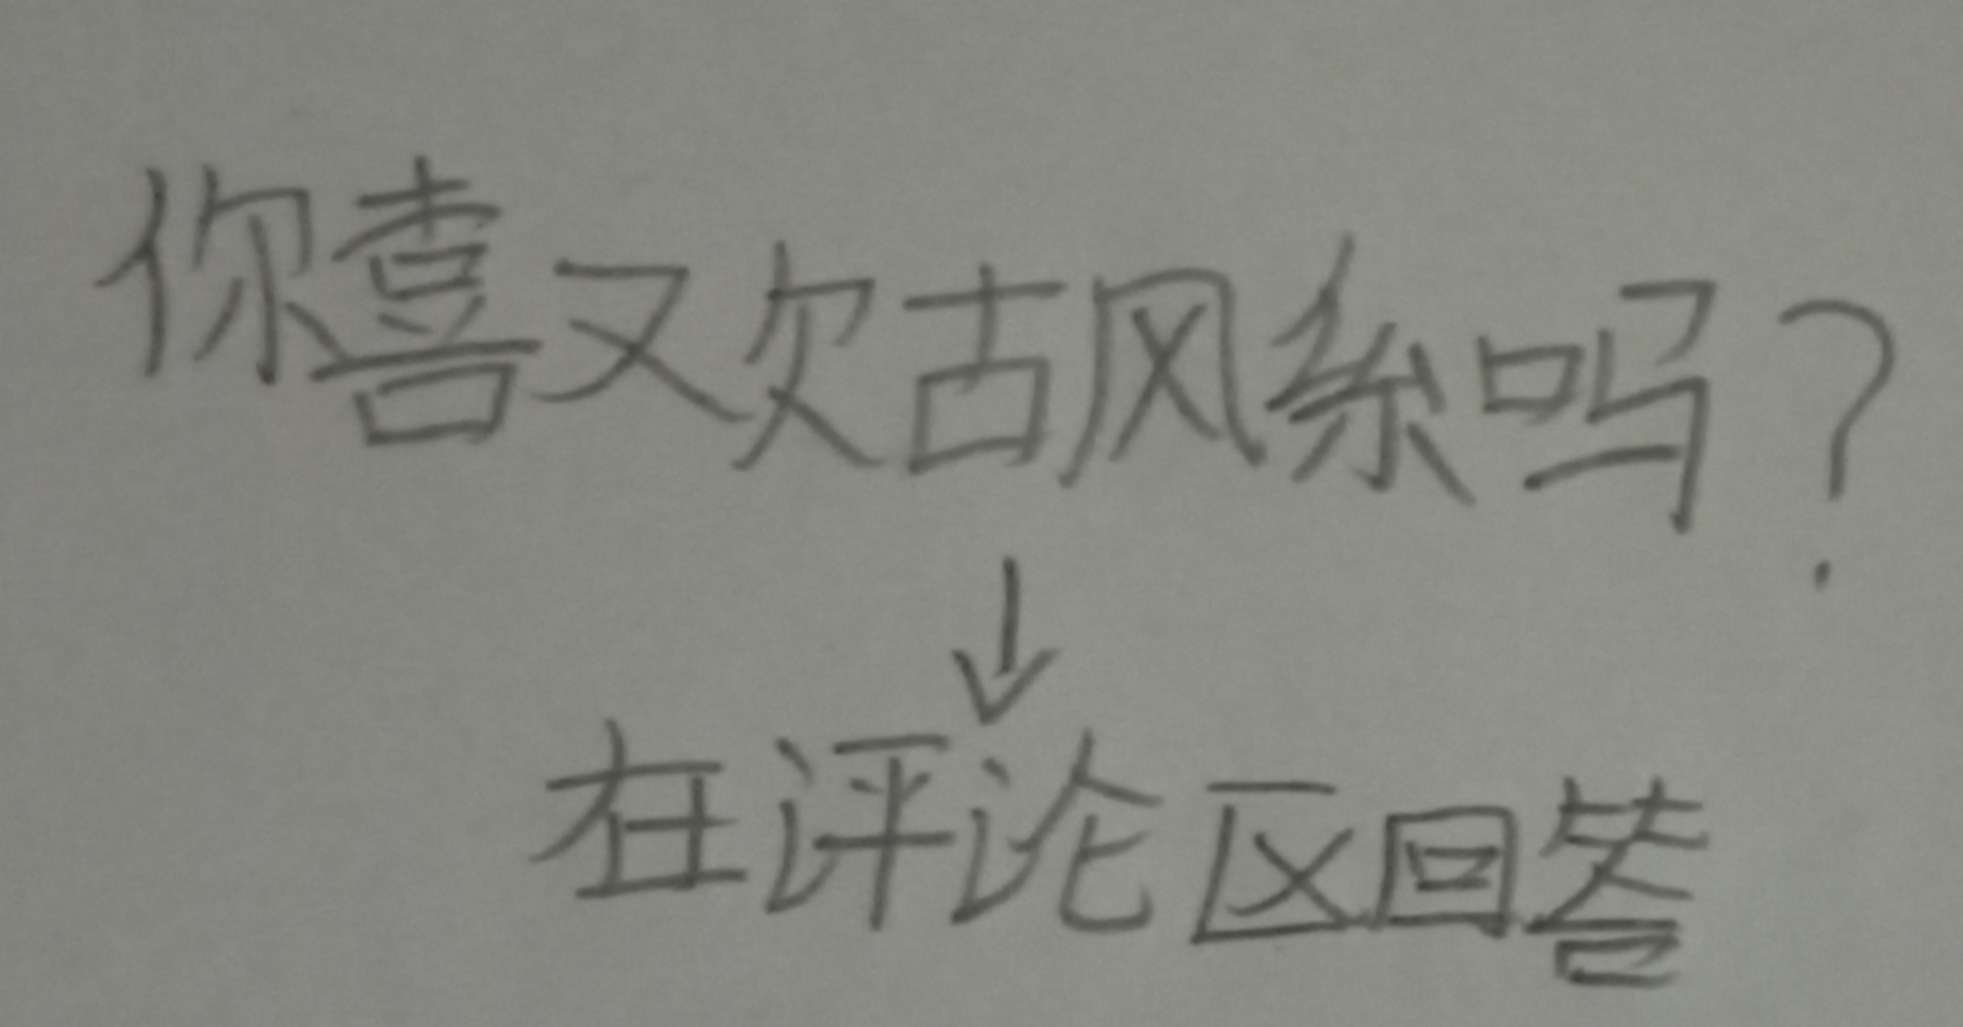 你喜欢古风系吗？
↓
在评论区回答